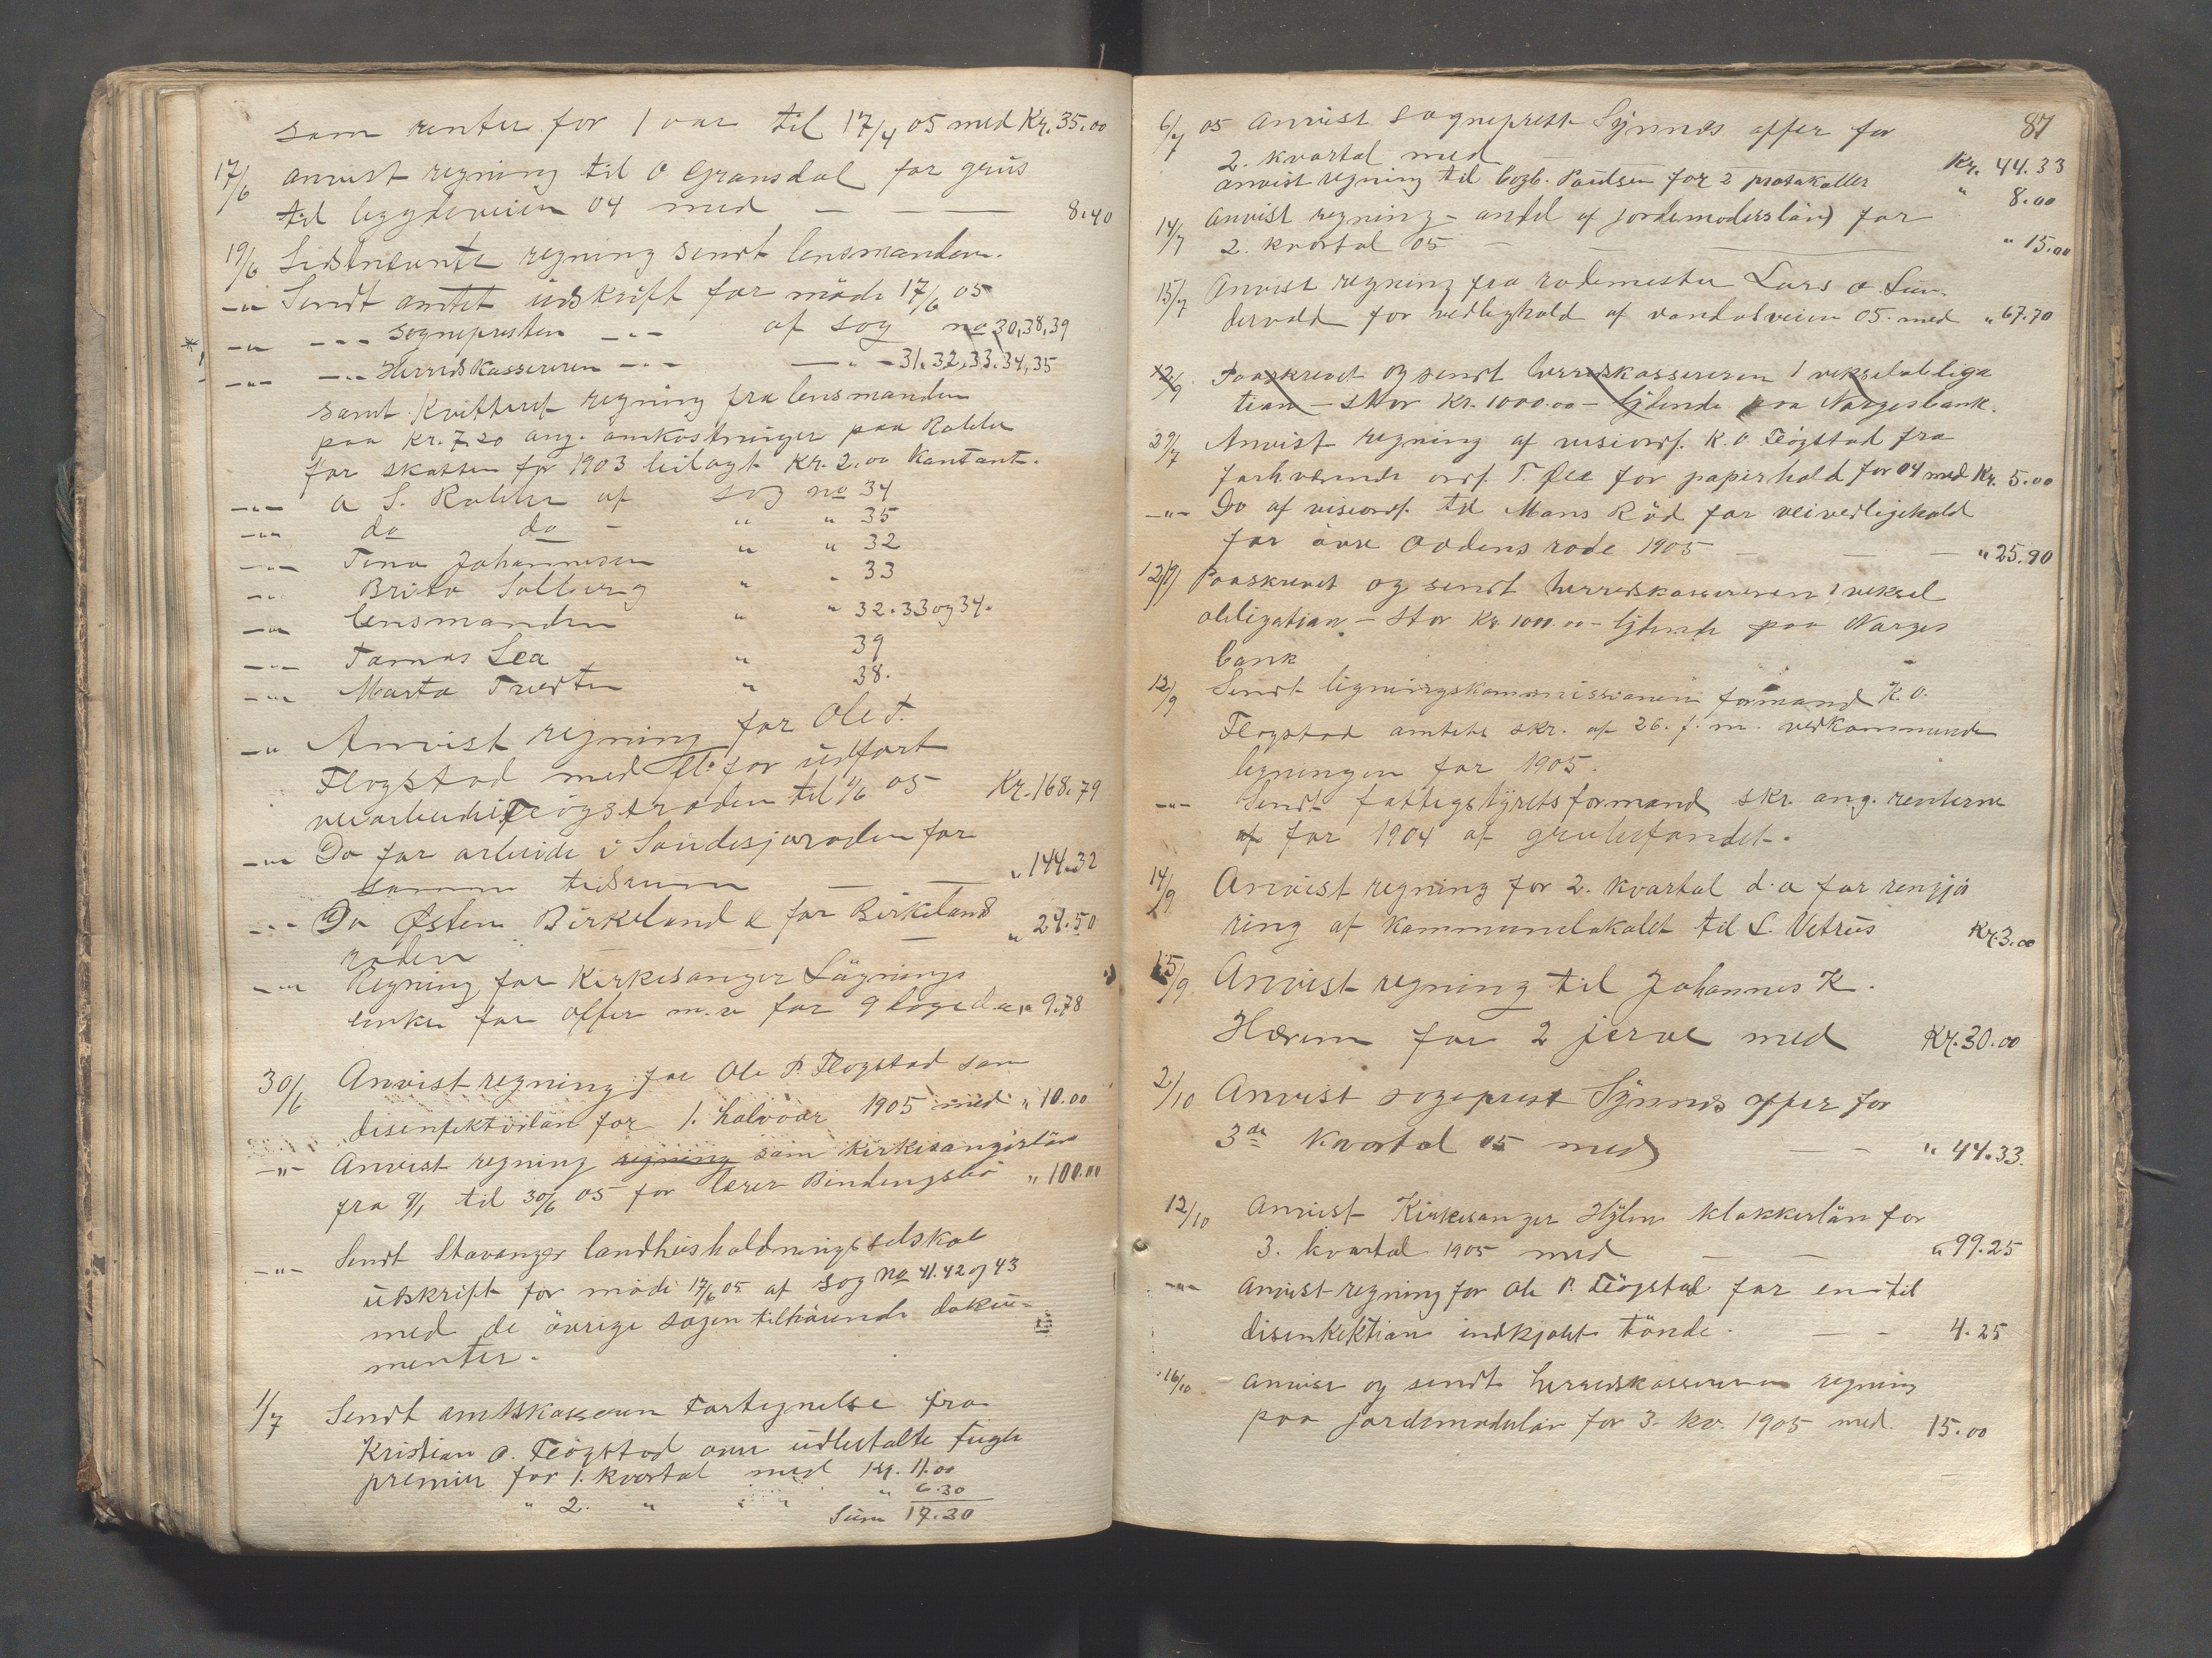 som renter for 1 aar til 17/4 05 med Kr. 35.00
17/6 anvist regning til O Gransdal for grus
til bygdeveien 04 med — — — 8.40
19/6 Sidstnævnte regning sendt lensmanden.
-"- Sendt amtet udskrift for møde 17/6 05
-"- -"- sognepresten -"- af sag no 30,38,39
-"- -"- Herredskassereren -"- -"- 31.32.33.34,35
samt kvitteret regning fra lensmanden
paa Kr. 7.20 ang. omkostninger paa Rabbe
for skatten for 1903 bilagt Kr. 2.00 Kontant.
-"- A S. Rabbe af sag no 34
-"- do do - " " 35
-"- Tina Johannesen " " 32
-"- Brita Solberg " " 33
-"- lensmanden " " 32.33 og 34.
-"- Tomas Lea " 39
-"- Marta Tvedten " 38.
-" Anvist regning for Ole T.
Flogstad med fl. for udført
veiarbeide i Fløgstroden til 1/6 05 Kr. 168.79
-"- Do for arbeide i Sandesjøroden for
samme tidsrum — — " 144.32
-"- Do Østen Birkeland e for Birkelands
roden — — " 24.50
-"- Regning for Kirkesanger Lügnings
enke for offer m.v for 9 dage d.a. " 9.78
30/6 Anvist regning for Ole P. Flogstad som
disenfektörløn for 1. halvaar 1905 med " 10.00
-"- Anvist regning regning som kirkesangerløn
fra 9/1 til 30/6 05 for lærer Bindingsbø " 100.00
-"- Sendt Stavanger landhusholdningsselskab
udskrift for møde 17/6 05 af sag no 41.42 og 43
med de øvrige sagen tilhørende doku-
menter.
1/7 Sendt amtskasseren Fortegnelse fra
Kristian O. Fløgstad over udbetalte fugle
premier for 1. kvartal med Kr. 11.00
" 2. " " " " 6.30
Sum 17.30
87
6/7 05 anvist sogneprest Synnes offer for
2. kvartal med — Kr. 44.33
anvist regning til bogb. Paulsen for 2 protokoller " 8.00
14/7 Anvist regning - andel af jordemoderslön) for
2. kvartal 05 — — " 15.00
15/7 Anvist regning fra rodemester Lars O. Sun-
dervold for vedlighold af vandalveien 05. med " 67.70
12/9 Paaskrevet og sendt herredskassereren 1 vekselobliga
tion - stor Kr. 1000.00 - lydende paa Norgesbank.
29/7 Anvist regning af viseordf. K. O Fløgstad fra
forhværende ordf. T. Lea for papirhold for 04 med Kr. 5.00
-"- Do af viseordf. til Mans Röd for veivedligehold
for övre Aadens rode 1905 — — — " 25.90
12/9 Paaskrevet og sendt herredskassereren 1 veksel
obligation - stor Kr 1000.00 - lydende paa Norges
bank
12/9 Sendt ligningskommissionens formand K. O.
Flogstad amtets skr. af 26. f. m. vedkommende
ligningen for 1905.
-"- Sendt fattigstyrets formand skr. ang. renterne
af for 1904 af grubefondet.
14/9 Anvist regning for 2. kvartal d.a for rengjö
ring af kommunelokalet til L. Vetrus Kr. 3.00
15/9 Anvist regning til Johannes K.
Hærem for 2 jerve med Kr. 30.00
2/10 Anvist sogeprest Synnes offer for
3de kvartal 05 med — — " 44.33.
12/10 Anvist Kirkesanger Hylen klokkerlön for
3. kvartal 1905 med — — " 99.25
-"- Anvist regning for Ole P. Fløgstad for en til
disenkektion indkjøbt tönde. — - 4.25
16/10 anvist og sendt herredskassereren regning
paa jordemoderløn for 3. kv. 1905 med. 15.00